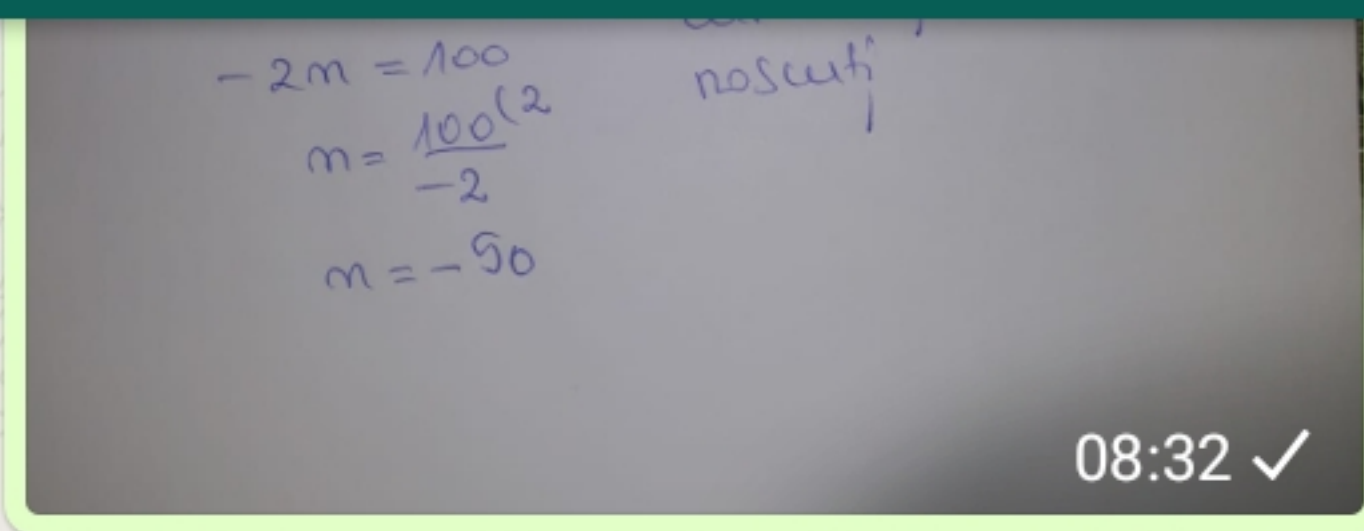 -2m = 100
m = 100(2 / -2
m = -50
noscuți
08:32 ✓